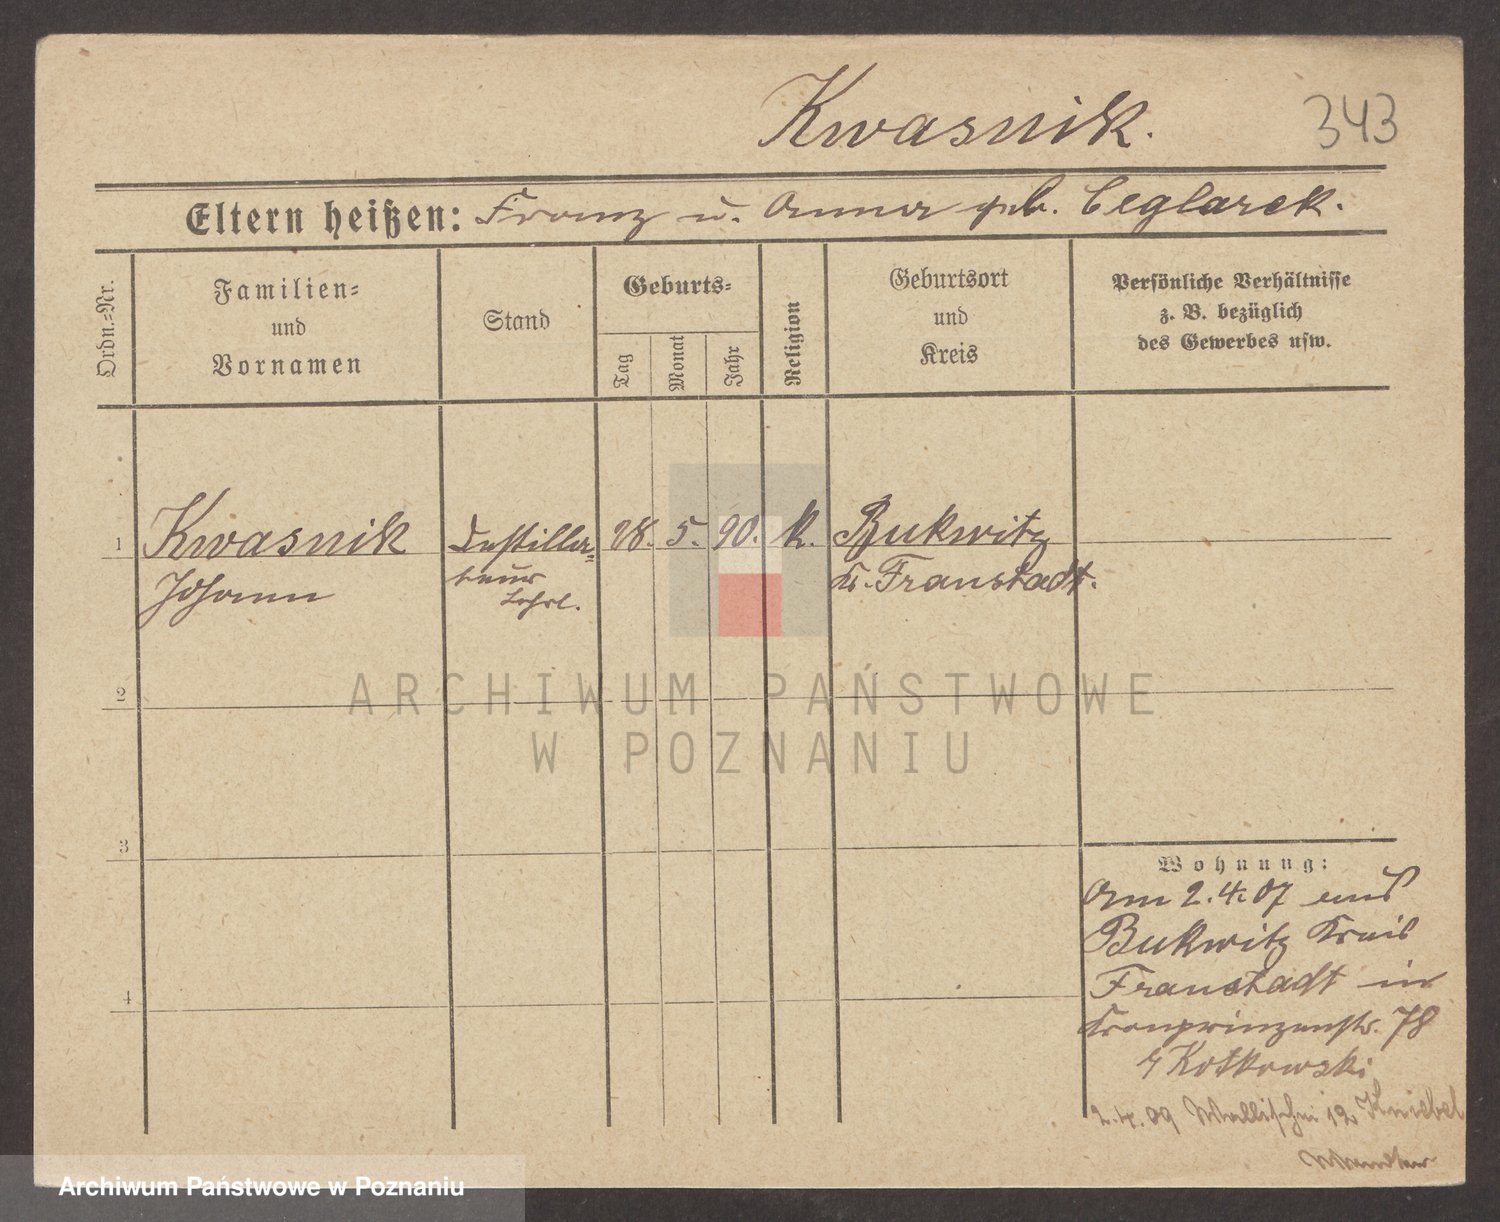 Kwasnik.
343
Eltern heißen: Franz u. Anna geb. Ceglarek.
Ordn.-Nr.
Familien-
und
Vornamen
Stand
Geburts-
Tag
Monat
Jahr
Religion
Geburtsort
und
Kreis
Persönliche Verhältnisse
z. B. bezüglich
des Gewerbes usw.
1 Kwasnik Destillar- 28. 5. 90. k. Bukwitz
Johann Kr. Fraustadt.
Lehrl.
2
3
4
Wohnung:
Am 2.4.07 aus
Bukwitz Kreis
Fraustadt in
Kronprinzenstr. 78
Kotkowski
2.4.09 Wallischei 12 Kniebel
ARCHIWUM PAŃSTWOWE
W POZNANIU
Archiwum Państwowe w Poznaniu